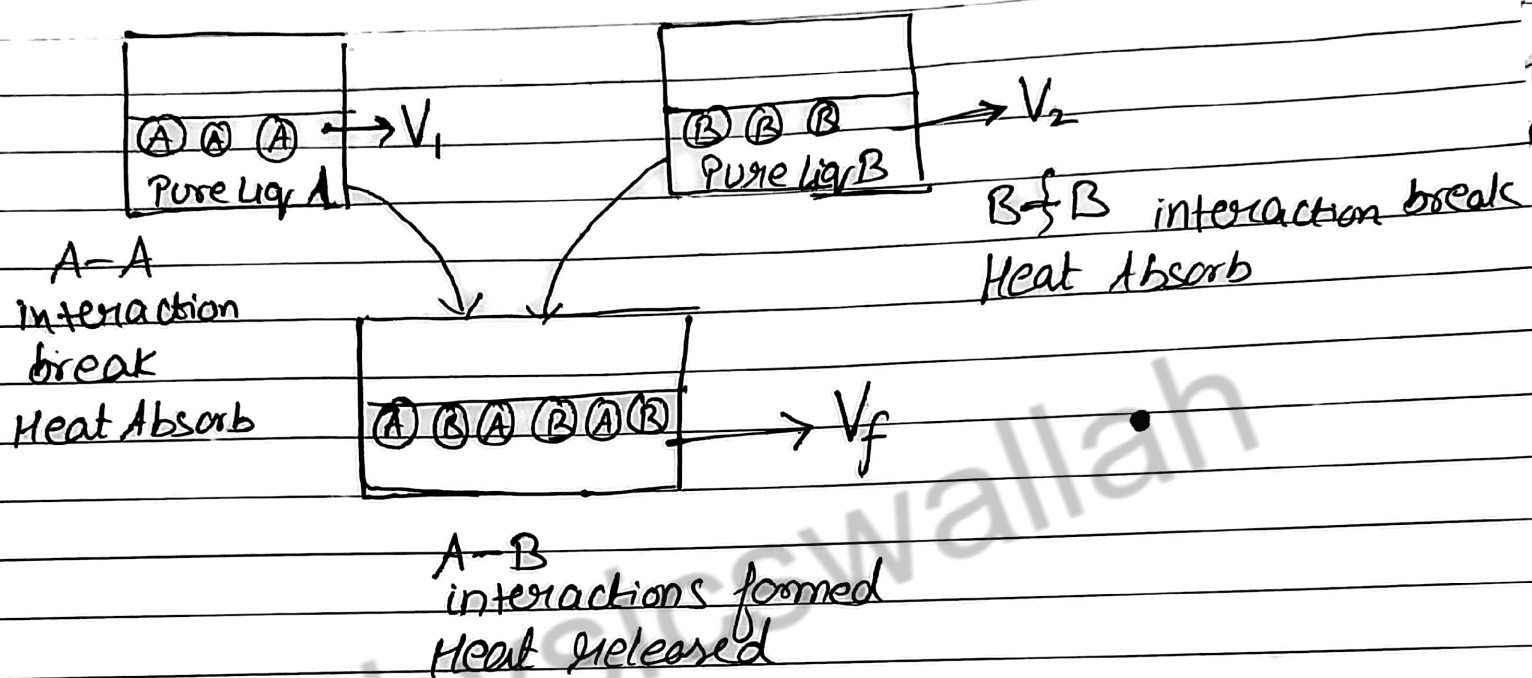 A A A → V₁
Pure Liq A
B B B → V₂
Pure Liq B
A-A
interaction
break
Heat Absorb
B-B interaction break
Heat Absorb
A B A B A B → Vf
A-B
interactions formed
Heat released
sicswallah